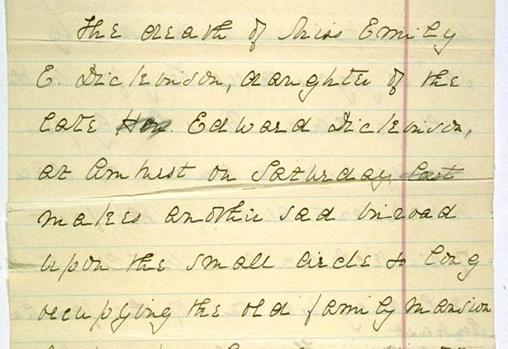 The death of Miss Emily
E. Dickinson, daughter of the
late Hon. Edward Dickinson,
at Amherst on Saturday, last
makes another sad inroad
upon the small circle so long
occupying the old family mansion